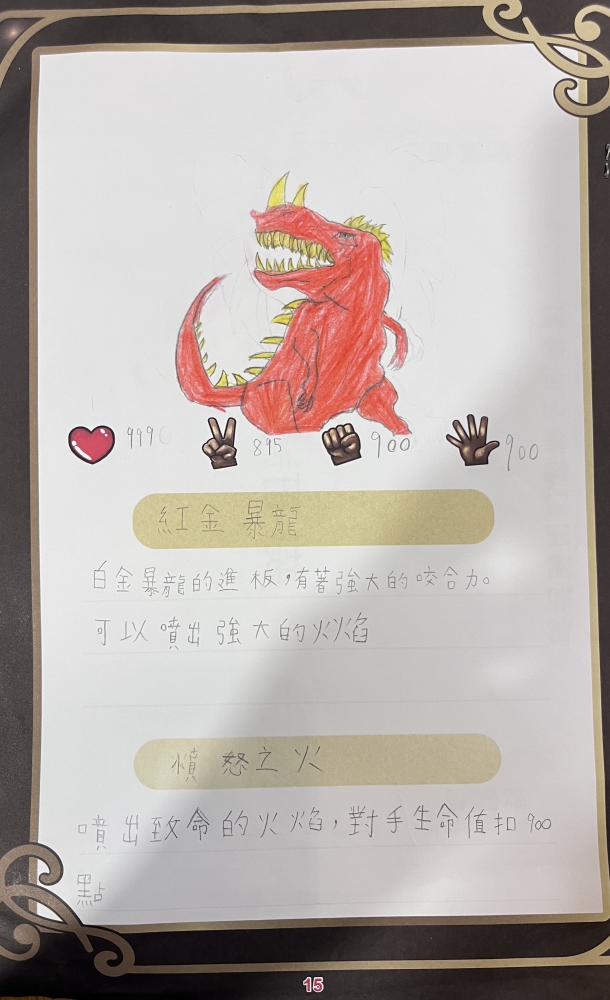 999
895
900
900
紅金暴龍
白金暴龍的進板，有著強大的咬合力。
可以噴出強大的火焰
憤怒之火
噴出致命的火焰，對手生命值扣900
點
15